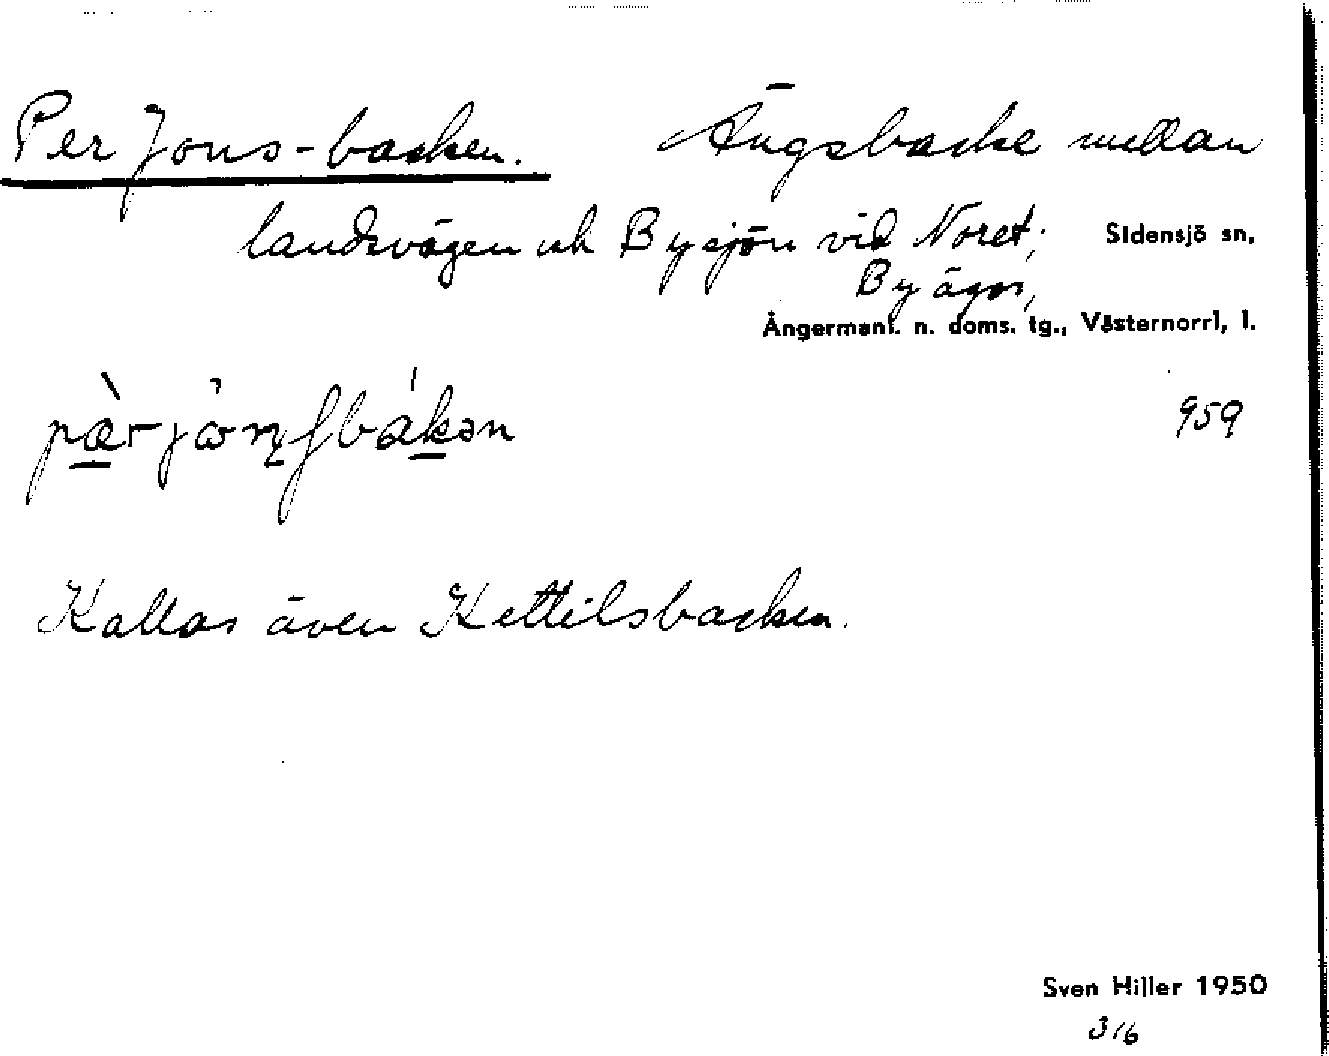 Per Jons-backen. Ängsbacke mellan
landsvägen och Bysjön vid Noret; Sidensjö sn,
By ägor,
Ångermanl. n. doms. tg., Västernorrl, l.
959
Kallas även Kettilsbacken.
Sven Hiller 1950
3/6